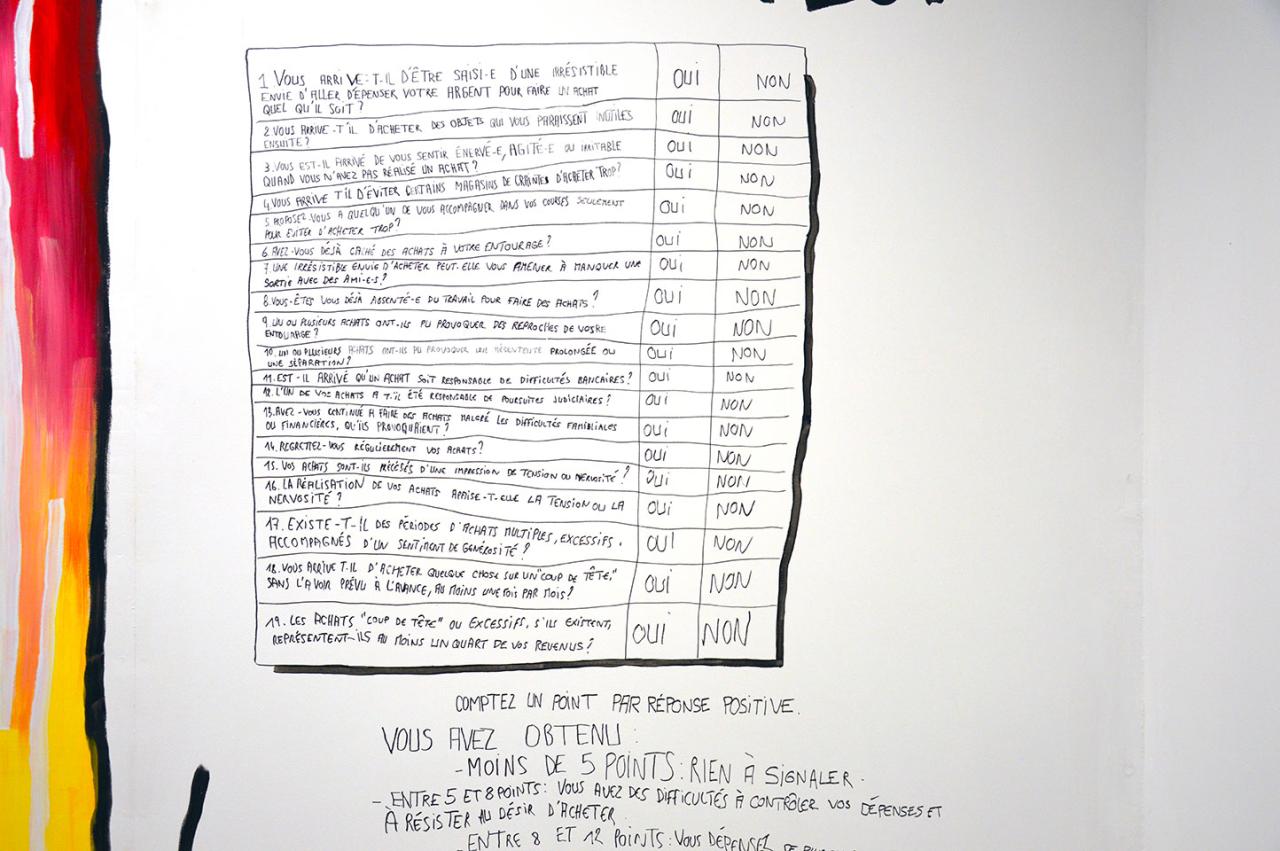 1 VOUS ARRIVE-T-IL D'ÊTRE SAISI-E D'UNE IRRÉSISTIBLE OUI NON
ENVIE D'ALLER DÉPENSER VOTRE ARGENT POUR FAIRE UN ACHAT
QUEL QU'IL SOIT ?
2 VOUS ARRIVE-T'IL D'ACHETER DES OBJETS QUI VOUS PARAISSENT INUTILES OUI NON
ENSUITE ?
3. VOUS EST-IL ARRIVÉ DE VOUS SENTIR ÉNERVÉ-E, AGITÉ-E OU IRRITABLE OUI NON
QUAND VOUS N'AVEZ PAS RÉALISÉ UN ACHAT ?
4 VOUS ARRIVE T'IL D'ÉVITER CERTAINS MAGASINS DE CRAINTES D'ACHETER TROP ? OUI NON
5 PROPOSEZ-VOUS A QUELQU'UN DE VOUS ACCOMPAGNER DANS VOS COURSES SEULEMENT OUI NON
POUR EVITER D'ACHETER TROP ?
6. AVEZ-VOUS DÉJÀ CACHÉ DES ACHATS À VOTRE ENTOURAGE ? OUI NON
7. UNE IRRÉSISTIBLE ENVIE D'ACHETER PEUT-ELLE VOUS AMENER À MANQUER UNE OUI NON
SORTIE AVEC DES AMI-E-S ?
8. VOUS-ÊTES VOUS DÉJÀ ABSENTÉ-E DU TRAVAIL POUR FAIRE DES ACHATS ? OUI NON
9. UN OU PLUSIEURS ACHATS ONT-ILS PU PROVOQUER DES REPROCHES DE VOTRE OUI NON
ENTOURAGE ?
10. UN OU PLUSIEURS ACHATS ONT-ILS PU PROVOQUER UNE MÉSENTENTE PROLONGÉE OU OUI NON
UNE SÉPARATION ?
11. EST-IL ARRIVÉ QU'UN ACHAT SOIT RESPONSABLE DE DIFFICULTÉS BANCAIRES ? OUI NON
12. L'UN DE VOS ACHATS A T'IL ÉTÉ RESPONSABLE DE POURSUITES JUDICIAIRES ? OUI NON
13. AVEZ-VOUS CONTINUÉ A FAIRE DES ACHATS MALGRÉ LES DIFFICULTÉS FAMILIALES
OU FINANCIÈRES, QU'ILS PROVOQUAIENT ? OUI NON
14. REGRETTEZ-VOUS RÉGULIEREMENT VOS ACHATS ? OUI NON
15. VOS ACHATS SONT-ILS PRÉCÉDÉS D'UNE IMPRESSION DE TENSION OU NERVOSITÉ ? OUI NON
16. LA RÉALISATION DE VOS ACHATS APAISE-T-ELLE LA TENSION OU LA OUI NON
NERVOSITÉ ?
17. EXISTE-T-IL DES PÉRIODES D'ACHATS MULTIPLES, EXCESSIFS, OUI NON
ACCOMPAGNÉS D'UN SENTIMENT DE GÉNÉROSITÉ ?
18. VOUS ARRIVE T.IL D'ACHETER QUELQUE CHOSE SUR UN "COUP DE TÊTE," OUI NON
SANS L'AVOIR PRÉVU À L'AVANCE, AU MOINS UNE FOIS PAR MOIS ?
19. LES ACHATS "COUP DE TÊTE" OU EXCESSIFS, S'ILS EXISTENT, OUI NON
REPRÉSENTENT-ILS AU MOINS UN QUART DE VOS REVENUS ?
COMPTEZ UN POINT PAR RÉPONSE POSITIVE.
VOUS AVEZ OBTENU :
- MOINS DE 5 POINTS : RIEN À SIGNALER.
- ENTRE 5 ET 8 POINTS : VOUS AVEZ DES DIFFICULTÉS À CONTRÔLER VOS DÉPENSES ET
À RÉSISTER AU DÉSIR D'ACHETER
- ENTRE 8 ET 12 POINTS : VOUS DÉPENSEZ